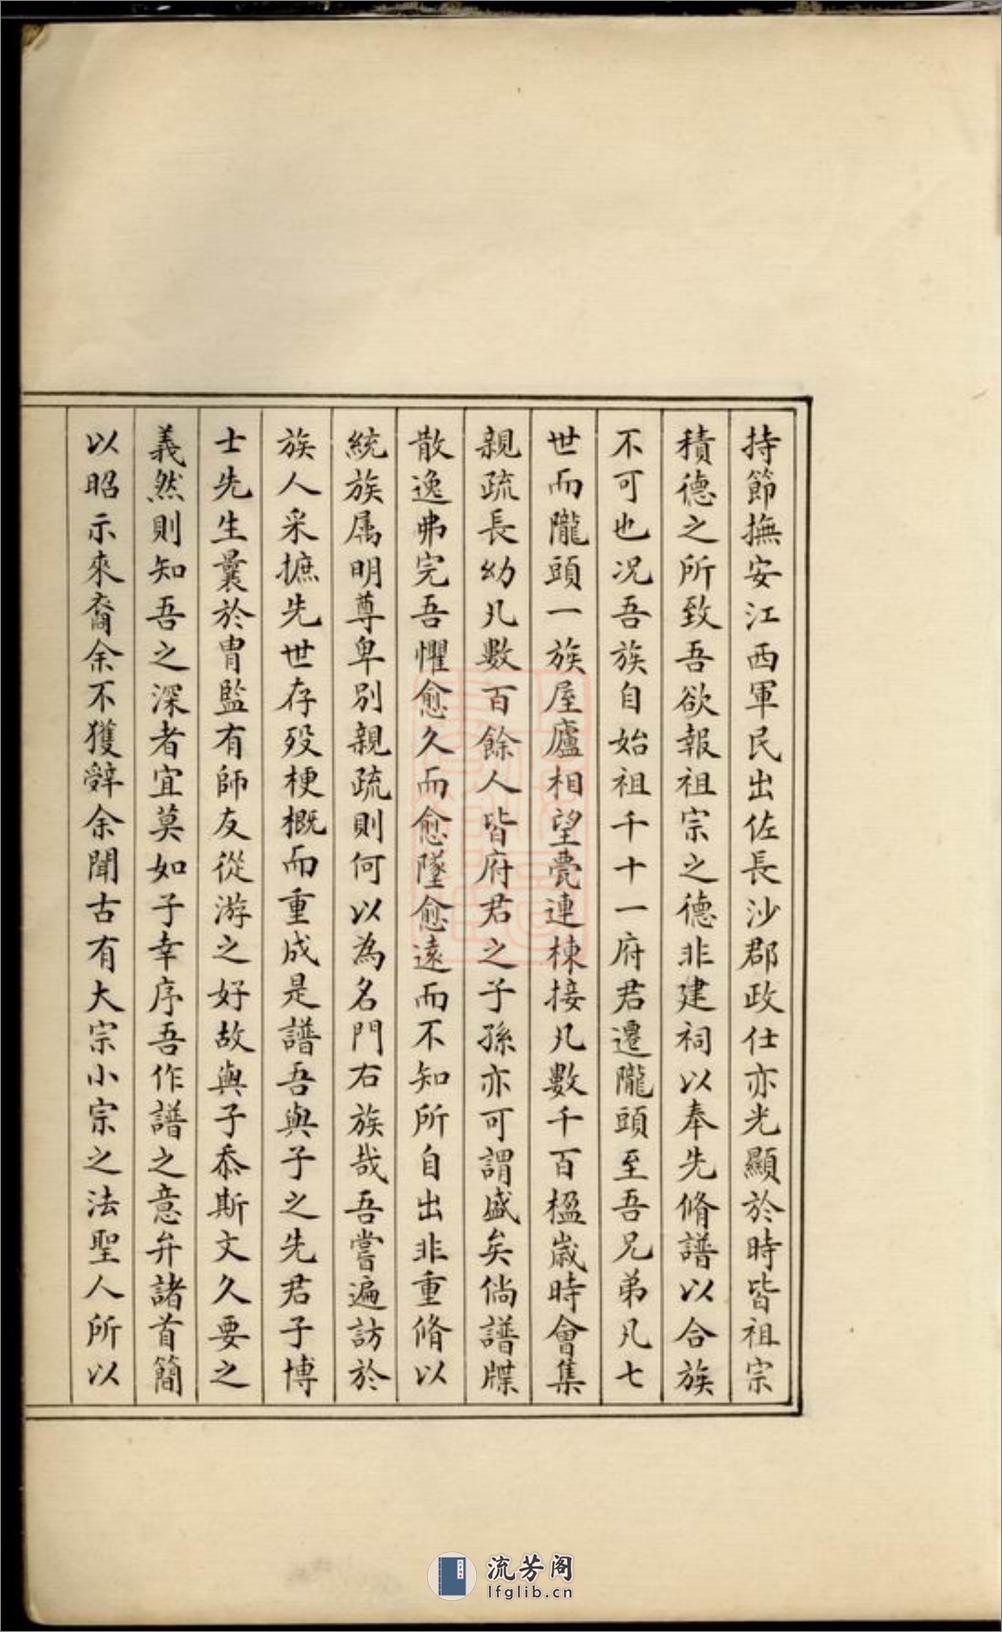 持節撫安江西軍民出佐長沙郡政仕亦光顯於時皆祖宗
積德之所致吾欲報祖宗之德非建祠以奉先脩譜以合族
不可也况吾族自始祖千十一府君遷隴頭至吾兄弟凡七
世而隴頭一族屋廬相望甍連棟接凡數千百楹歲時會集
親疏長幼凡數百餘人皆府君之子孫亦可謂盛矣倘譜牒
散逸弗完吾懼愈久而愈墜愈遠而不知所自出非重脩以
統族属明尊卑别親疏則何以為名門右族哉吾嘗遍訪於
族人采摭先世存殁梗概而重成是譜吾與子之先君子博
士先生曩於胄監有師友從游之好故與子忝斯文久要之
義然則知吾之深者宜莫如子幸序吾作譜之意弁諸首簡
以昭示來裔余不獲辤余聞古有大宗小宗之法聖人所以
流芳阁
lfglib.cn